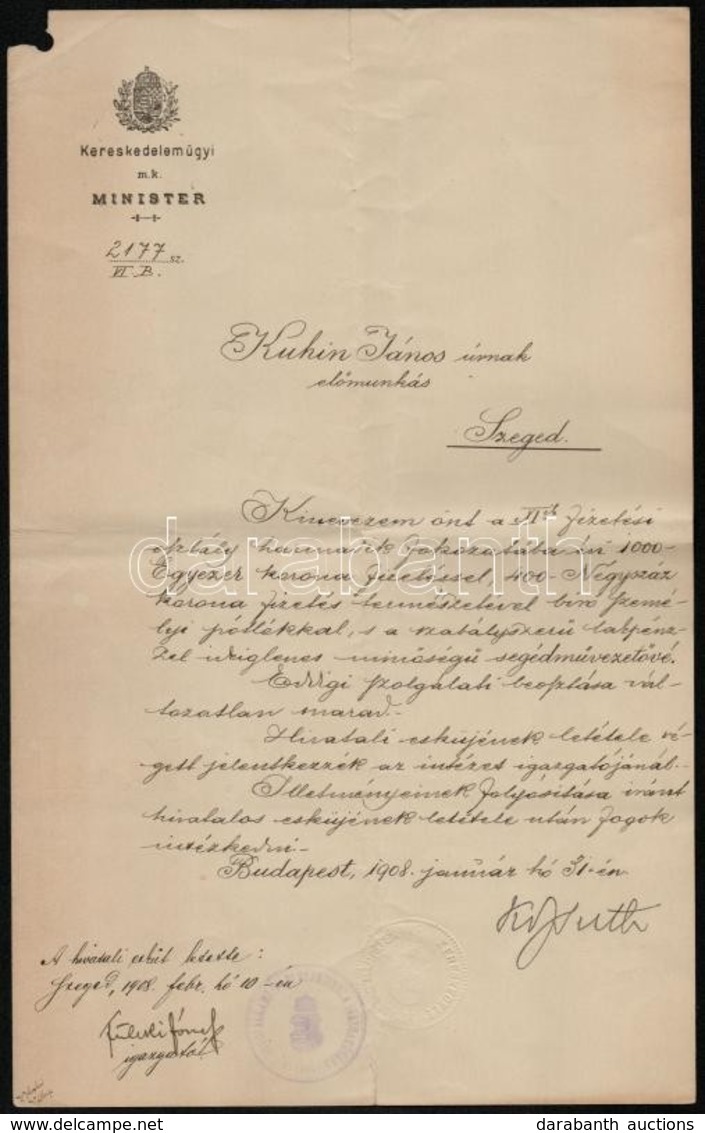 Kereskedelemügyi
m.k.
MINISTER
2177 sz.
VI. B.
Kuhin János úrnak
előmunkás
Szeged.
Kinevezem önt a II ik fizetési
osztály harmadik fokozatába évi 1000-
Egyezer korona fizetéssel, 400- Négyszáz
korona fizetés természetével biró szemé-
lyi pótlékkal, s a szabályszerű lakpénz-
zel ideiglenes minőségű segédművezetővé.
Eddigi szolgálati beosztása vál-
tozatlan marad.-
Hivatali esküjének letétele vé-
gett jelentkezzék az intézet igazgatójánál.-
Illetményeinek folyósitása iránt
hivatalos esküjének letétele után fogok
intézkedni.-
Budapest, 1908. január hó 31-én
Kossuth
A hivatali esküt letette:
Szeged, 1908. febr. hó 10-én
igazgató
darabanth
darabanth auctions
www.darabanth.com